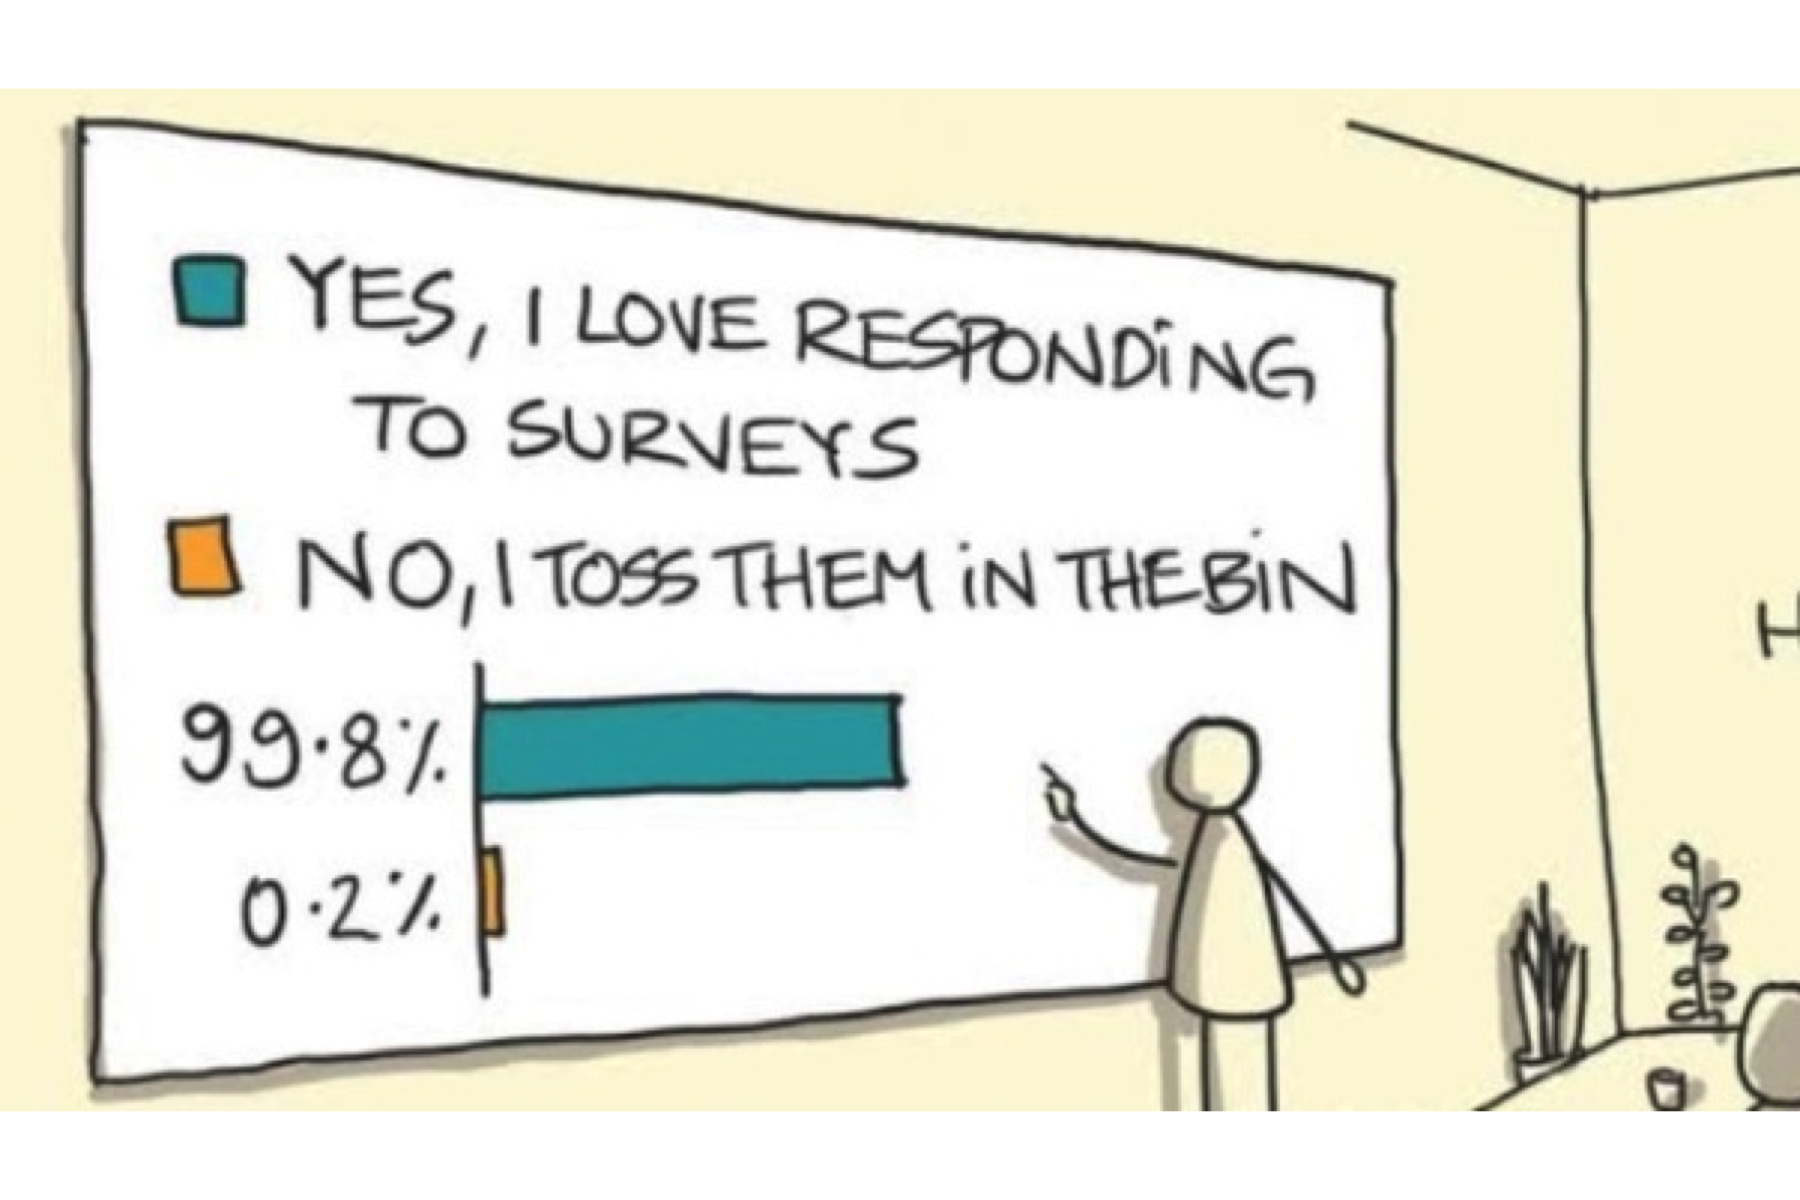 YES, I LOVE RESPONDING
TO SURVEYS
NO, I TOSS THEM IN THE BIN
99.8%
0.2%